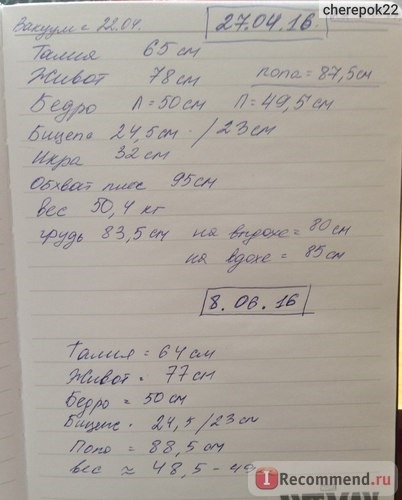 cherepok22
Вакуум с 22.04.
27.04.16.
Талия 65 см
Живот 78 см попа = 87,5 см
Бедро Л = 50 см П = 49,5 см
Бицепс 24,5 см / 23 см
Икра 32 см
Обхват плеч 95 см
вес 50,4 кг
грудь 83,5 см на выдохе = 80 см
на вдохе = 85 см
8.06.16
Талия = 64 см
Живот = 77 см
Бедро = 50 см
Бицепс = 24,5 / 23 см
Попа = 88,5 см
вес ≈ 48,5 - 49
Recommend.ru